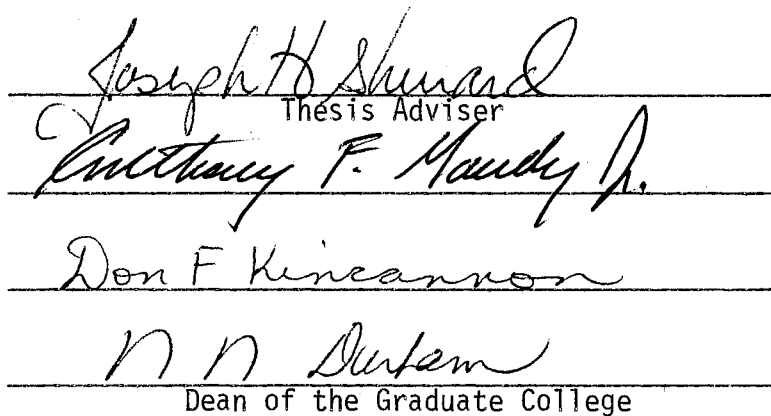 Joseph H Sherrard
Thesis Adviser
Anthony F. Gaudy Jr.
Don F Kincannon
N N Durham
Dean of the Graduate College